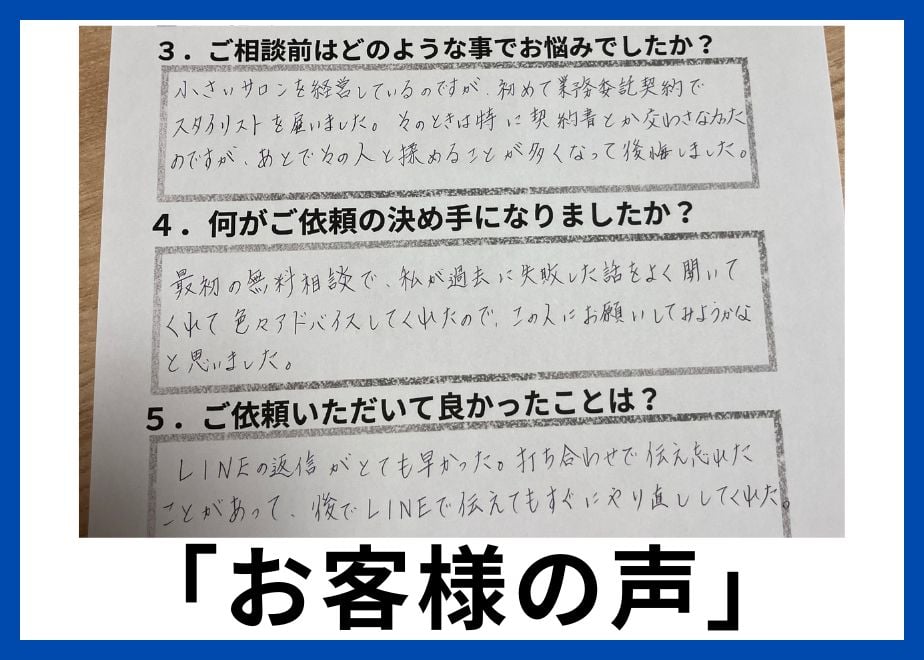 ３．ご相談前はどのような事でお悩みでしたか？
小さいサロンを経営しているのですが、初めて業務委託契約で
スタイリストを雇いました。そのときは特に契約書とか交わさなかった
のですが、あとでその人と揉めることが多くなって後悔しました。
４．何がご依頼の決め手になりましたか？
最初の無料相談で、私が過去に失敗した話をよく聞いて
くれて色々アドバイスしてくれたので、この人にお願いしてみようかな
と思いました。
５．ご依頼いただいて良かったことは？
LINEの返信がとても早かった。打ち合わせで伝え忘れた
ことがあって、後でLINEで伝えてもすぐにやり直ししてくれた。
「お客様の声」